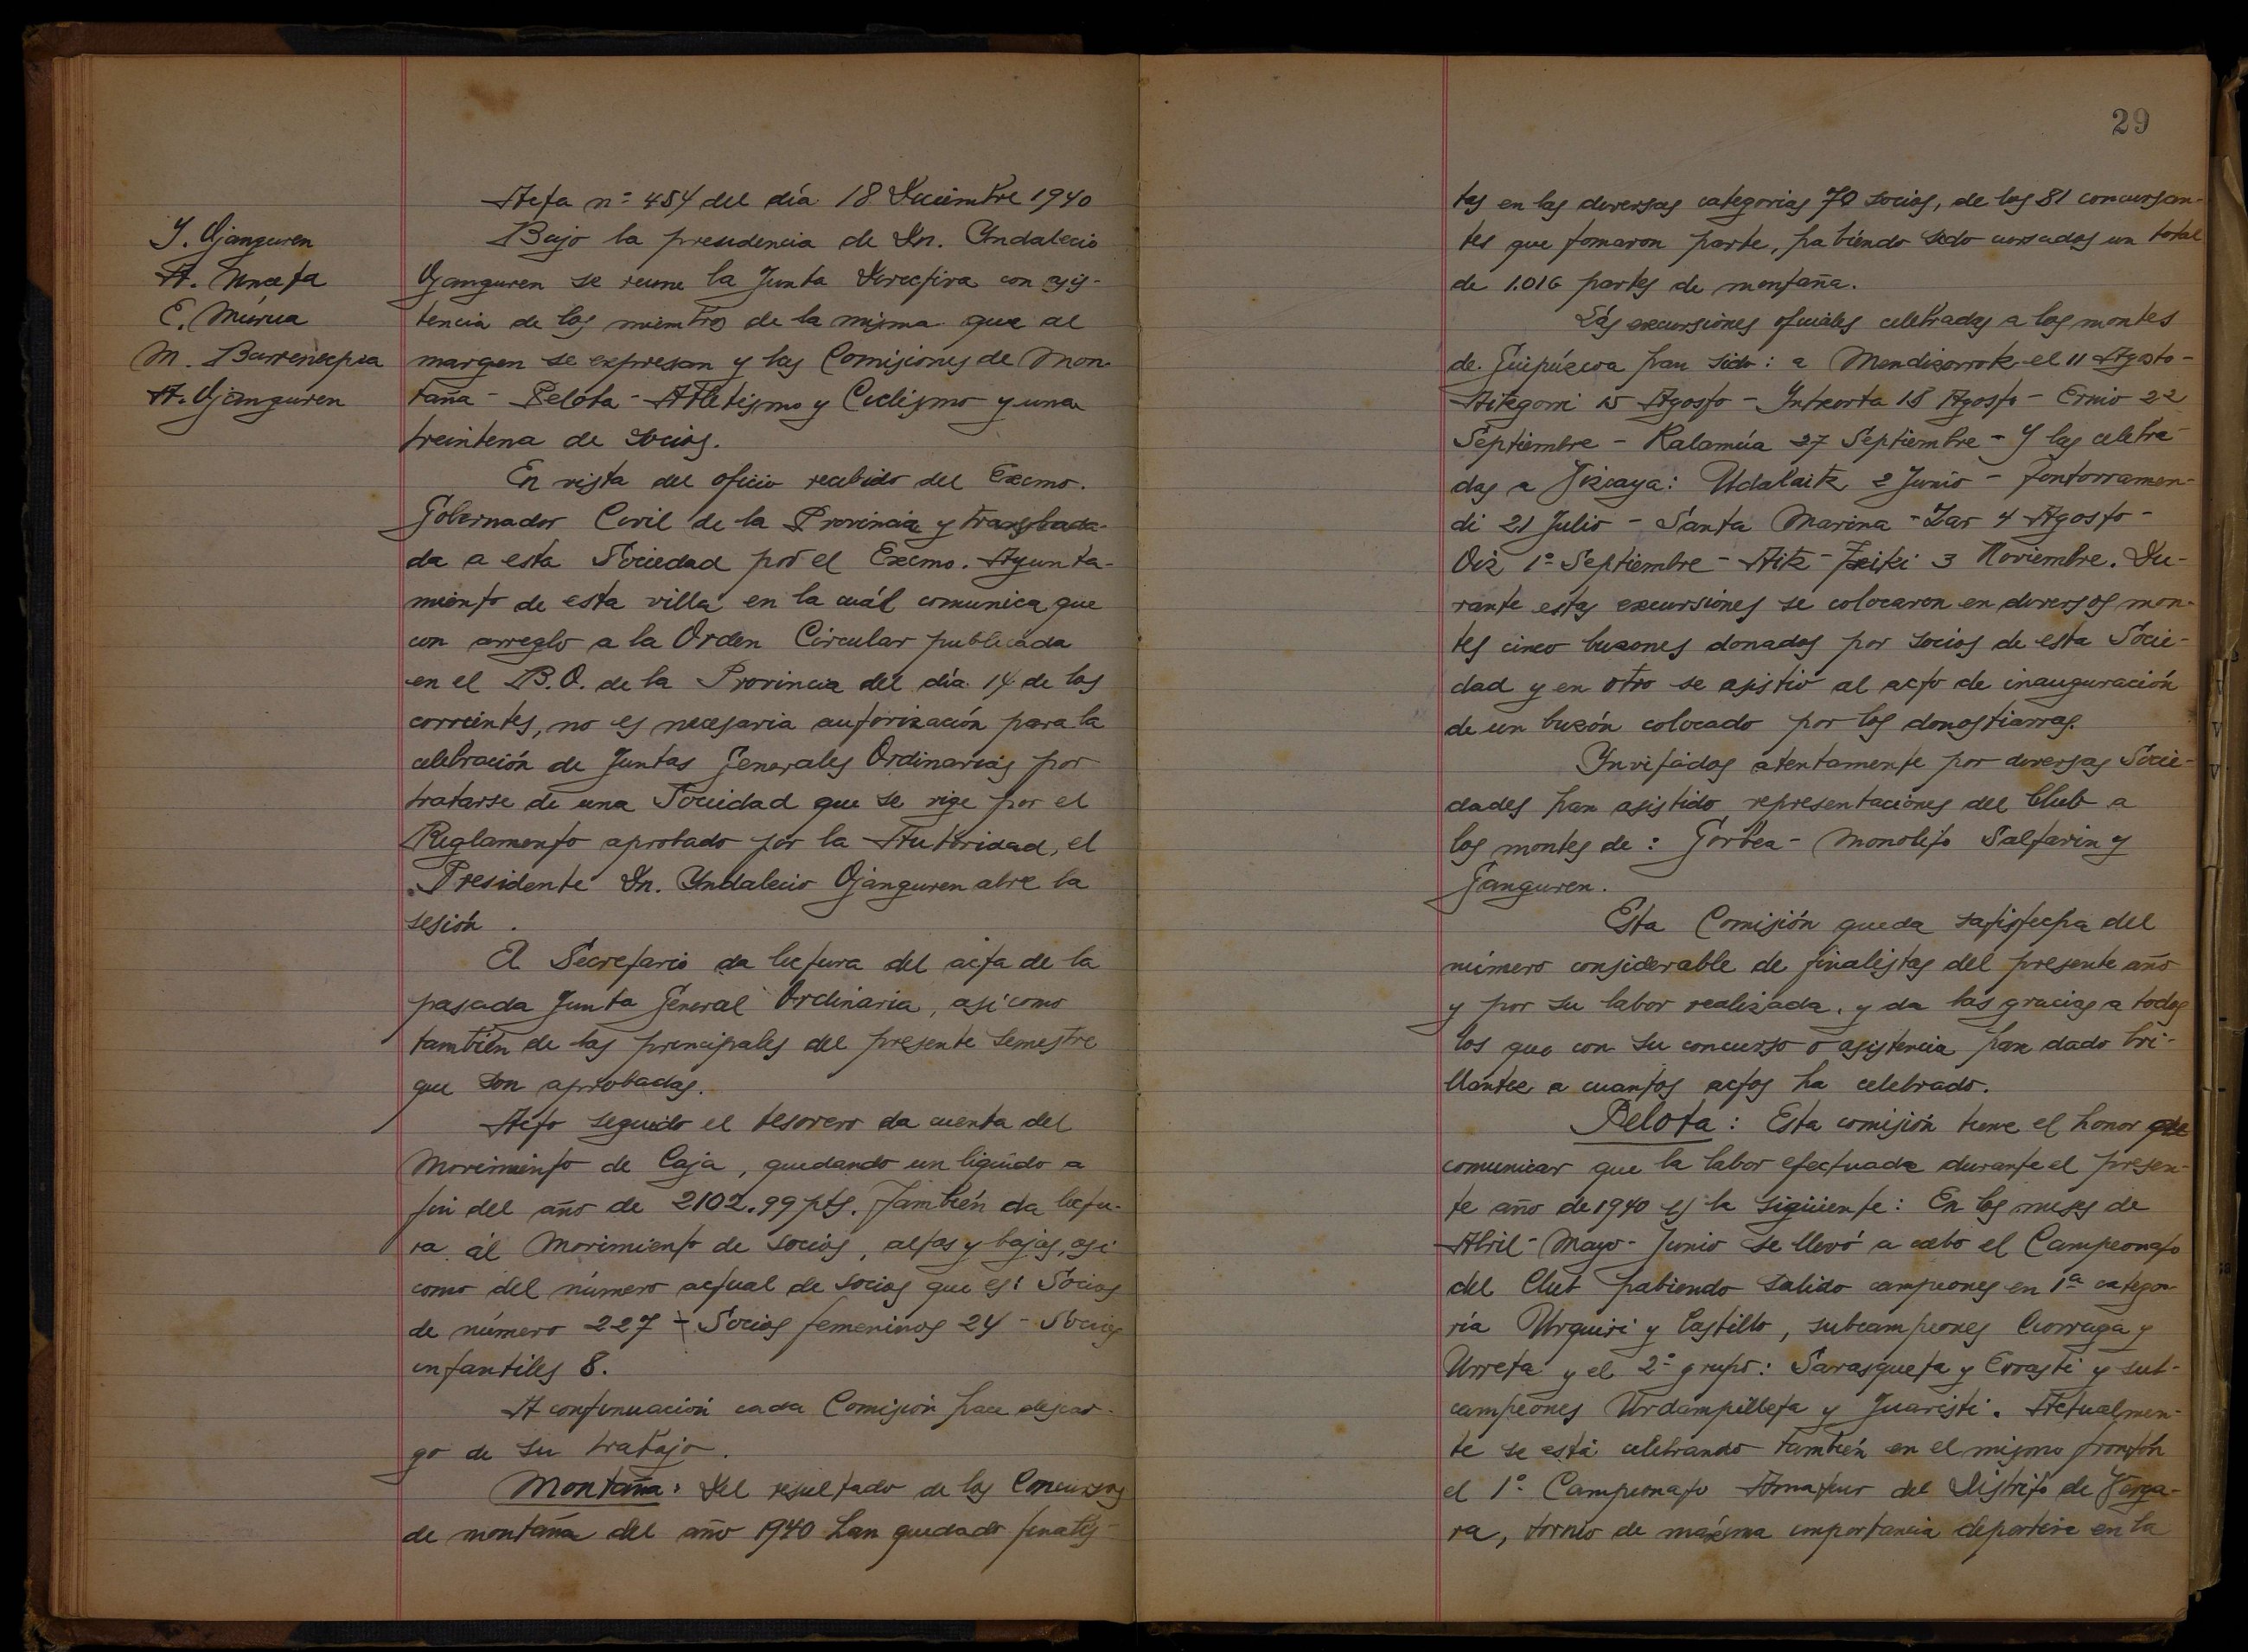 Acta nº 454 del día 18 Diciembre 1940
Y. Ojanguren
A. Unceta
E. Múrua
M. Barrenechea
A. Ojanguren
Bajo la presidencia de Dn. Yndalecio
Ojanguren se reune la Junta Directiva con asis-
tencia de los miembros de la misma que al
margen se expresan y las Comisiones de Mon-
taña - Pelota - Atletismo y Ciclismo y una
treintena de socios.
En vista del oficio recibido del Excmo.
Gobernador Civil de la Provincia y transladada-
da a esta Sociedad por el Excmo. Ayunta-
miento de esta villa en la cuál comunica que
con arreglo a la Orden Circular publicada
en el B.O. de la Provincia del día 14 de los
corrientes, no es necesaria autorización para la
celebración de Juntas Generales Ordinarias por
tratarse de una Sociedad que se rige por el
Reglamento aprobado por la Autoridad, el
Presidente Dn. Yndalecio Ojanguren abre la
sesión.
El Secretario da lectura del acta de la
pasada Junta General Ordinaria, asi como
también de las principales del presente semestre
que son aprobadas.
Acto seguido el tesorero da cuenta del
Movimiento de Caja, quedando un liquido a
fin del año de 2102.99 pts. También da lectu-
ra al Movimiento de socios, altas y bajas, asi
como del número actual de socios que es: Socios
de número 227 - Socios femeninos 24 - Socios
infantiles 8.
A continuación cada Comisión hace descar-
go de su trabajo.
Montaña: Del resultado de los Concursos
de montaña del año 1940 han quedado finalis-
29
tas en las diversas categorias 70 socios, de los 81 concursan-
tes que tomaron parte, habiendo sido cursados un total
de 1.016 partes de montaña.
Las excursiones oficiales celebradas a los montes
de Guipúzcoa han sido: a Mendizorrotz el 11 Agosto -
Aitzgorri 15 Agosto - Intxorta 18 Agosto - Ernio 22
Septiembre - Kalamúa 27 Septiembre - Y las celebra-
das a Vizcaya: Udalaitz 2 Junio - Fontorramen-
di 21 Julio - Santa Marina - Zar 4 Agosto -
Oiz 1º Septiembre - Aitz - Txiki 3 Noviembre. Du-
rante estas excursiones se colocaron en diversos mon-
tes cinco buzones donados por socios de esta Socie-
dad y en otro se asistió al acto de inauguración
de un buzón colocado por los donostiarras.
Invitados atentamente por diversas Socie-
dades han asistido representaciones del Club a
los montes de: Gorbea - Monolito Saltarin y
Ganguren.
Esta Comisión queda satisfecha del
número considerable de finalistas del presente año
y por su labor realizada, y da las gracias a todos
los que con su concurso o asistencia han dado bri-
llantez a cuantos actos ha celebrado.
Pelota: Esta comisión tiene el honor de
comunicar que la labor efectuada durante el presen-
te año de 1940 es la sigüiente: En los meses de
Abril - Mayo - Junio se llevó a cabo el Campeonato
del Club habiendo salido campeones en 1ª catego-
ría Urquiri y Castillo, subcampeones Ciorraga y
Urreta y el 2º grupo: Sarasqueta y Errasti y sub-
campeones Urdampilleta y Juaristi. Actualmen-
te se está celebrando también en el mismo frontón
el 1º Campeonato Amateur del Distrito de Verga-
ra, torneo de máxima importancia deportiva en la